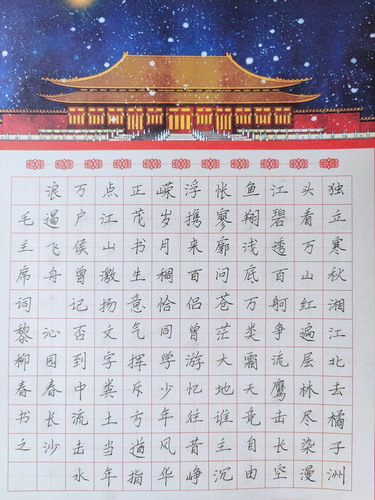 独立寒秋湘江北去橘子洲
头看万山红遍层林尽染漫
江碧透百舸争流鹰击长空
鱼翔浅底万类霜天竞自由
怅寥廓问苍茫大地谁主沉
浮携来百侣曾游忆往昔峥
嵘岁月稠恰同学少年风华
正茂书生意气挥斥方遒指
点江山激扬文字粪土当年
万户侯曾记否到中流击水
浪遏飞舟 沁园春长沙
毛主席词 黎柳春书之